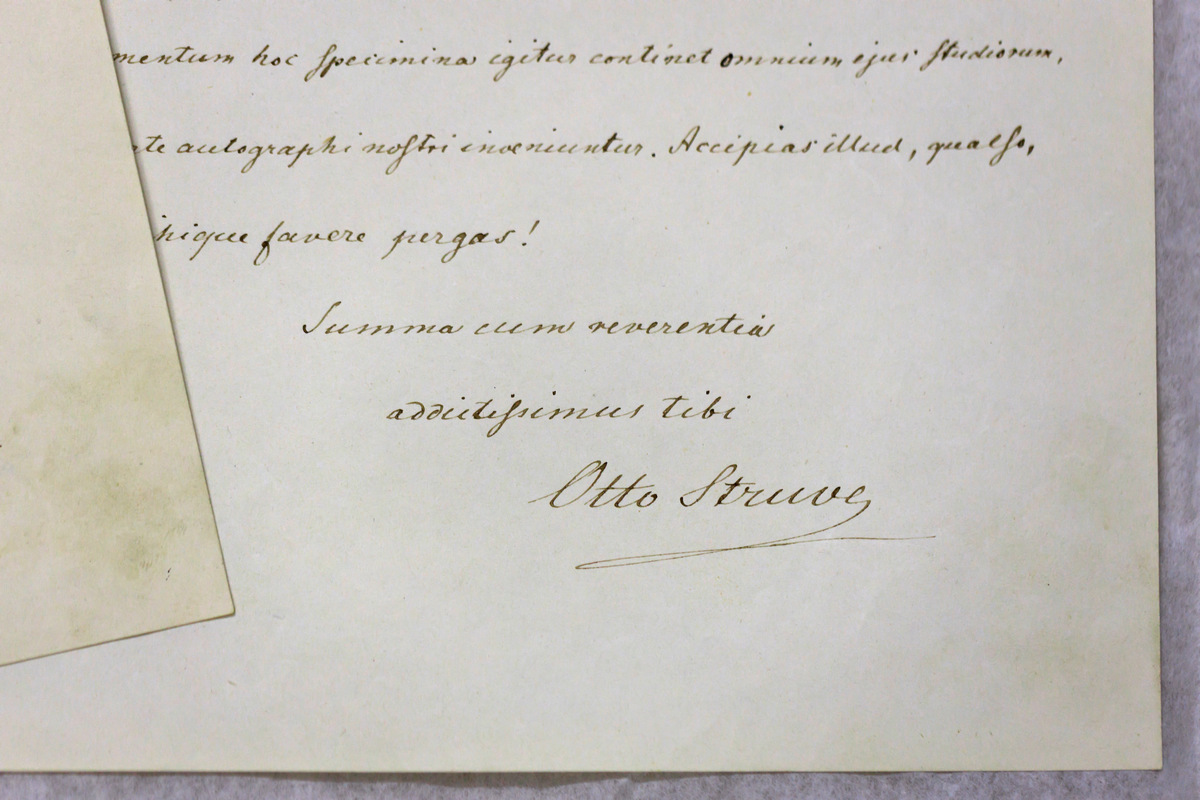 mentum hoc specimina igitur continet omnium ejus studiorum,
te autographi nostri inveniuntur. Accipias illud, quaeso,
hique favere pergas!
Summa cum reverentia
addictissimus tibi
Otto Struve